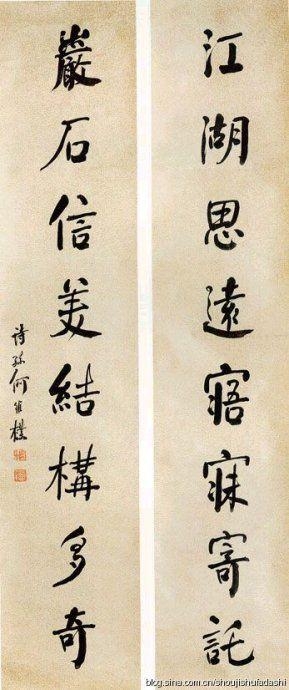 江湖思遠寤寐寄託
巖石信美結構多奇
詩孫何維樸
blog.sina.com.cn/shoujishufadashi